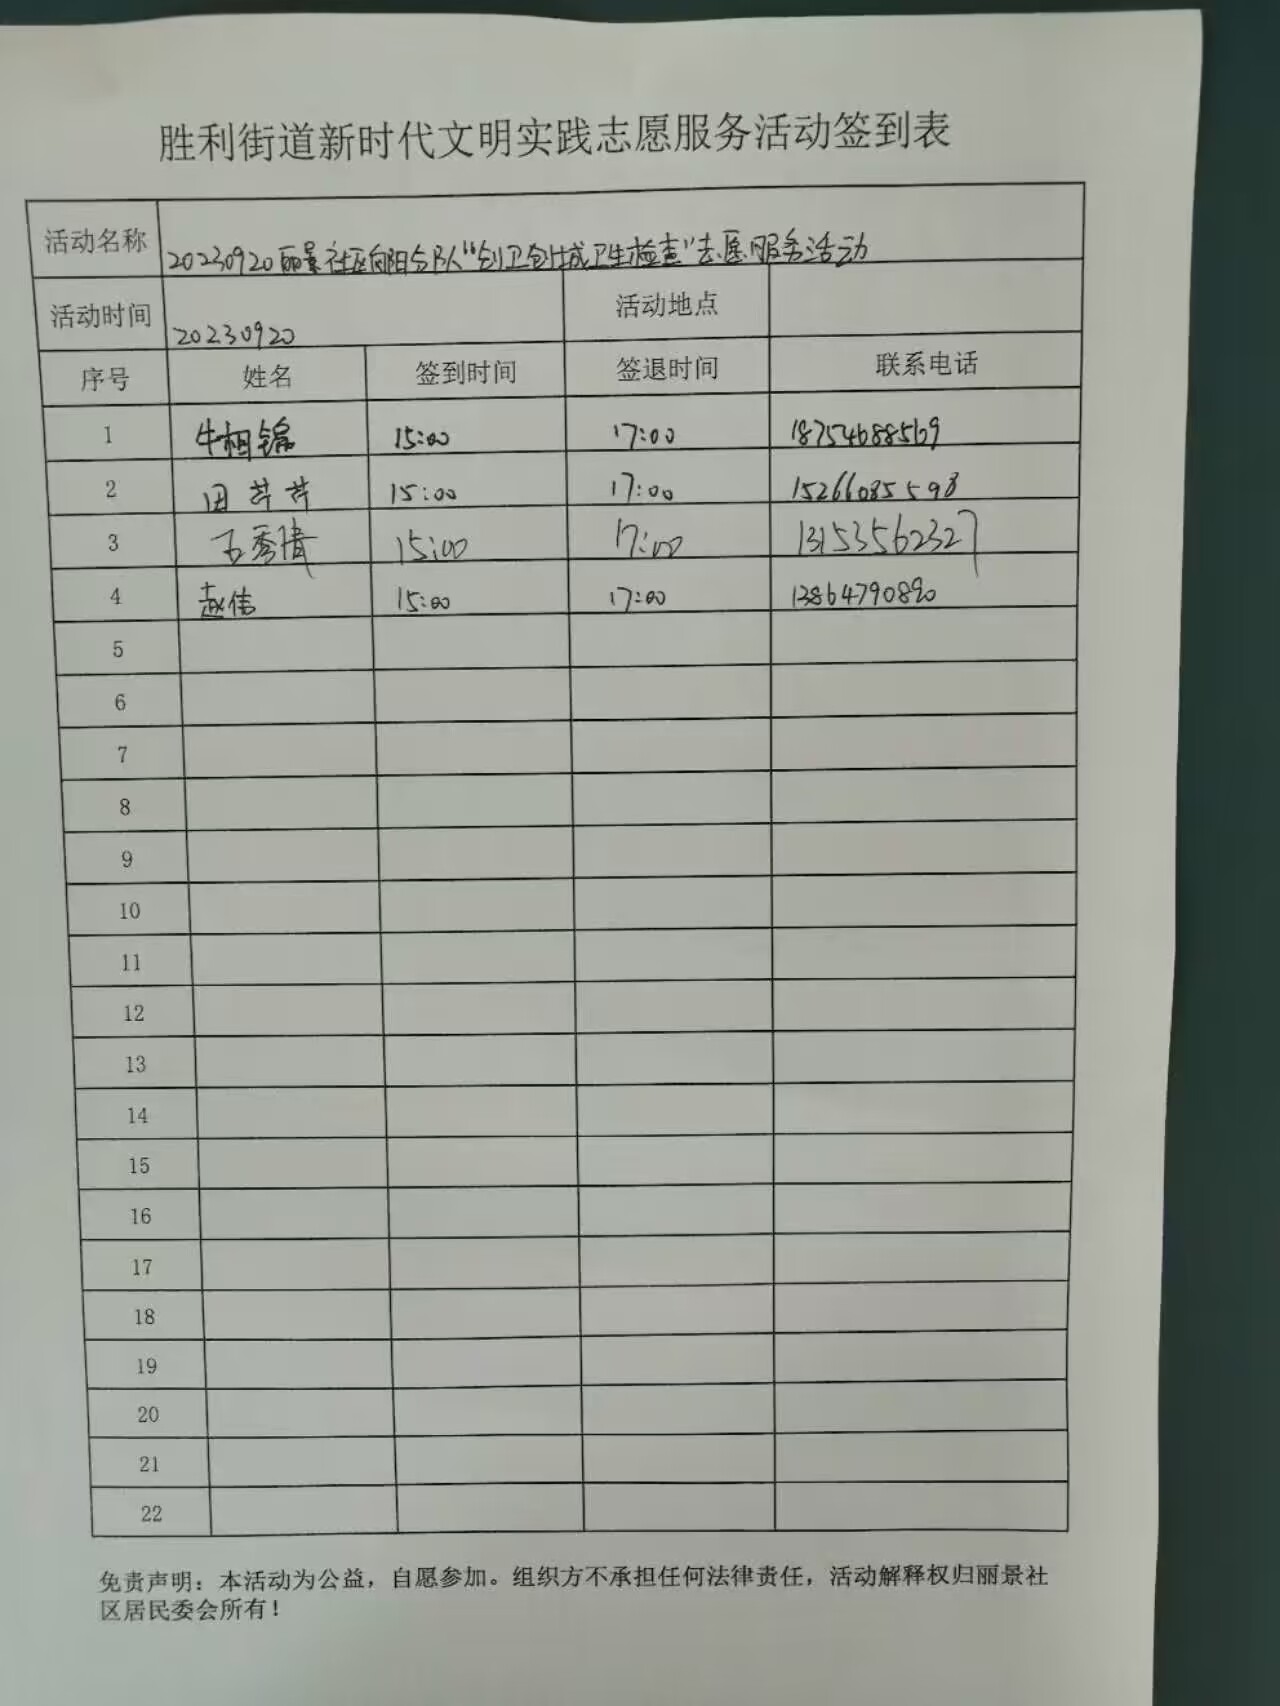 胜利街道新时代文明实践志愿服务活动签到表
活动名称 20230920丽景社区向阳分队“创卫创城卫生检查”志愿服务活动
活动时间 20230920 活动地点
序号 姓名 签到时间 签退时间 联系电话
1 牛相锦 15:00 17:00 18754688569
2 田芹芹 15:00 17:00 15266085598
3 石秀清 15:00 17:00 13153562327
4 赵伟 15:00 17:00 13864790890
5
6
7
8
9
10
11
12
13
14
15
16
17
18
19
20
21
22
免责声明：本活动为公益，自愿参加。组织方不承担任何法律责任，活动解释权归丽景社
区居民委会所有！